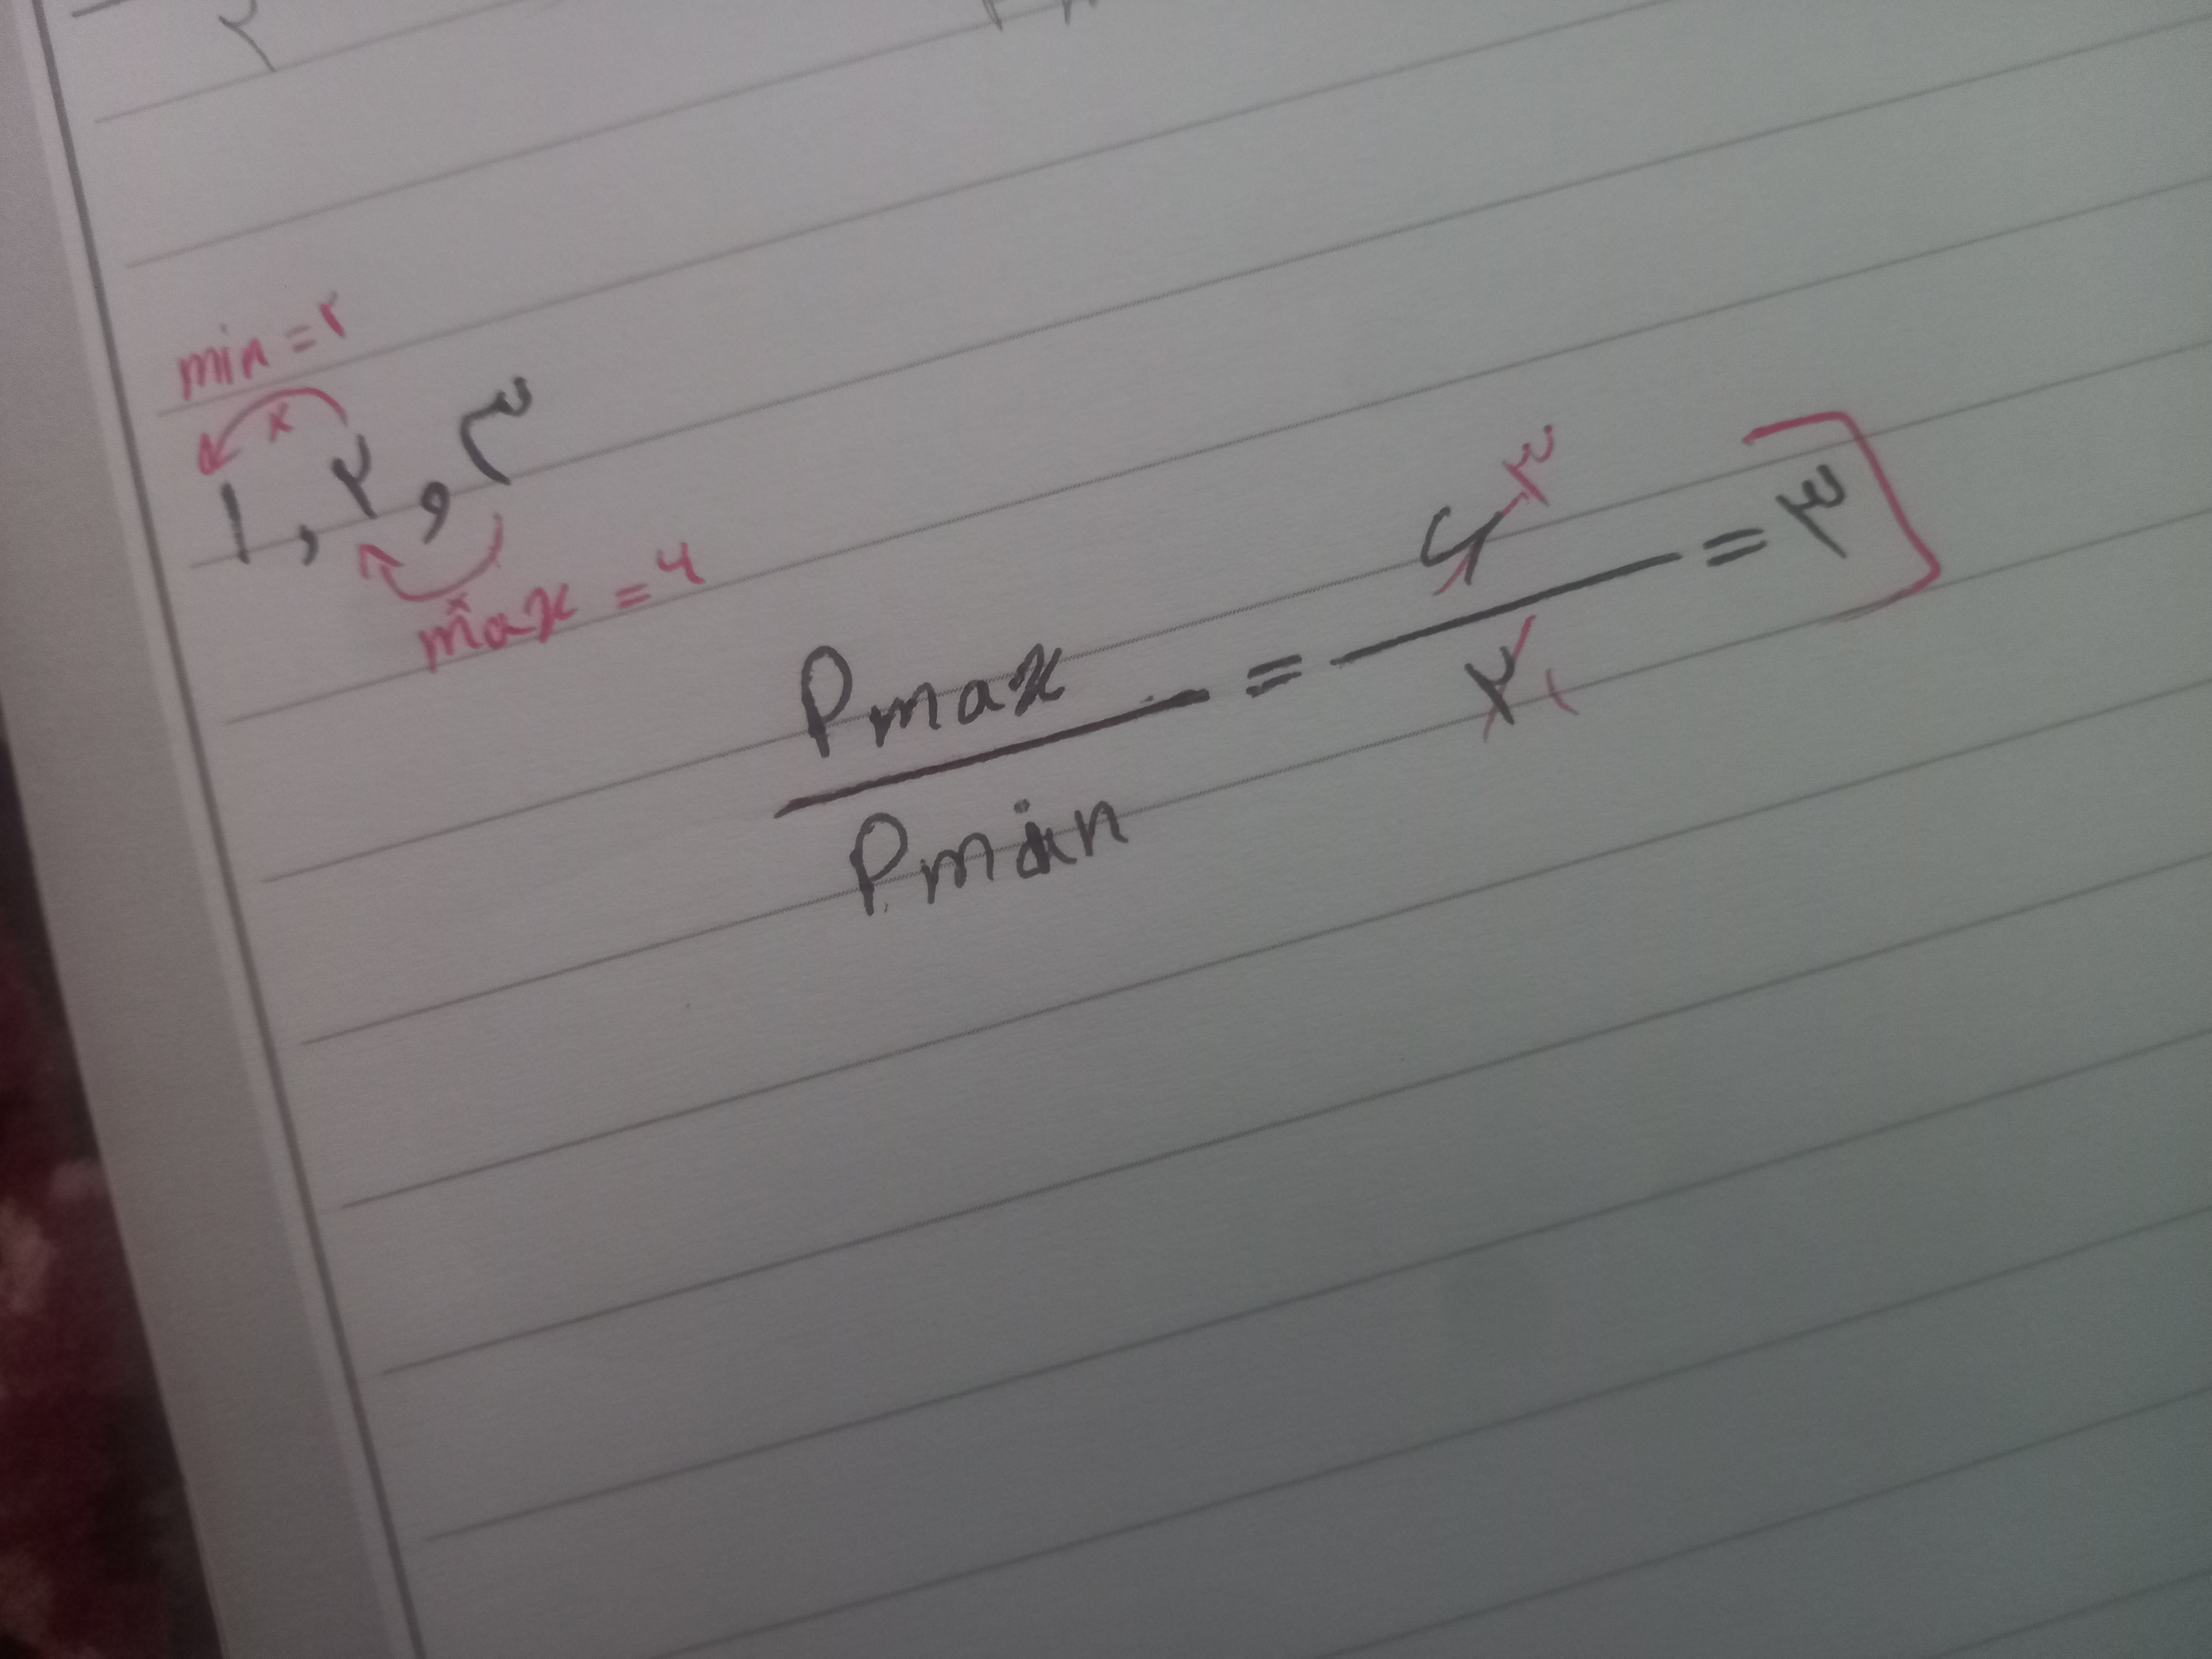 ۲
min = ۲
×
۱ , ۲ , ۳
×
max = ۶
Pmax / Pmin = ۶ / ۲ = ۳
۳
۱